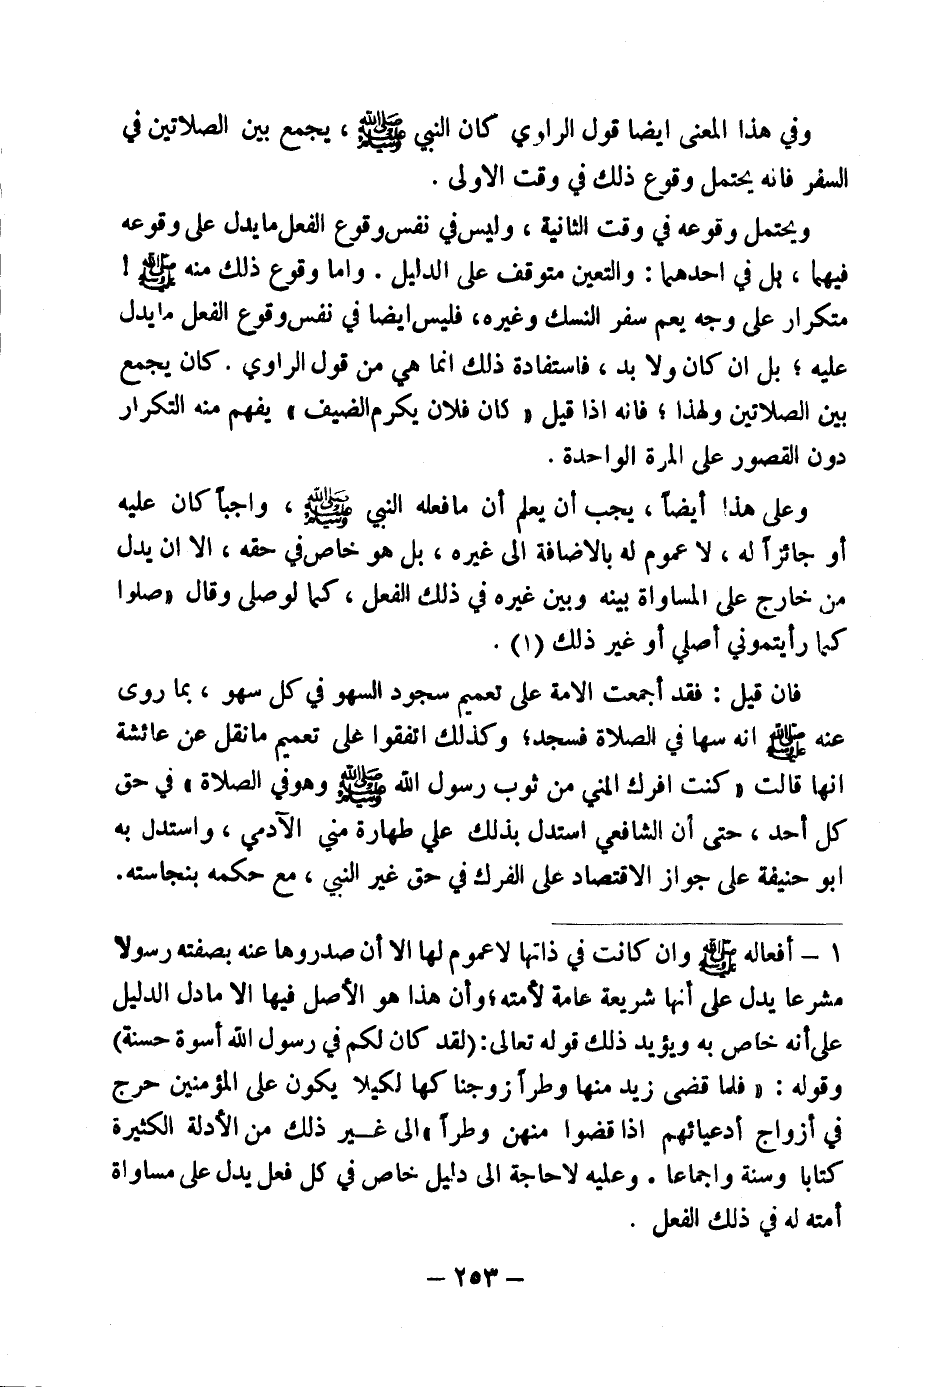 وفي هذا المعنى ايضا قول الراوي كان النبي ﷺ ، يجمع بين الصلاتين في
السفر فانه يحتمل وقوع ذلك في وقت الاولى .
ويحتمل وقوعه في وقت الثانية ، وليس في نفس وقوع الفعل مايدل على وقوعه
فيهما ، بل في احدهما : والتعين متوقف على الدليل . واما وقوع ذلك منه ﷺ !
متكرار على وجه يعم سفر النسك وغيره، فليس ايضا في نفس وقوع الفعل مايدل
عليه ؛ بل ان كان ولا بد ، فاستفادة ذلك انما هي من قول الراوي . كان يجمع
بين الصلاتين ولهذا ؛ فانه اذا قيل « كان فلان يكرم الضيف » يفهم منه التكرار
دون القصور على المرة الواحدة .
وعلى هذا أيضاً ، يجب أن يعلم أن مافعله النبي ﷺ ، واجباً كان عليه
أو جائزاً له ، لا عموم له بالاضافة الى غيره ، بل هو خاص في حقه ، الا ان يدل
من خارج على المساواة بينه وبين غيره في ذلك الفعل ، كما لو صلى وقال «صلوا
كما رأيتموني أصلي أو غير ذلك (١) .
فان قيل : فقد أجمعت الامة على تعميم سجود السهو في كل سهو ، بما روى
عنه ﷺ انه سها في الصلاة فسجد؛ وكذلك اتفقوا على تعميم مانقل عن عائشة
انها قالت « كنت افرك المني من ثوب رسول الله ﷺ وهو في الصلاة » في حق
كل أحد ، حتى أن الشافعي استدل بذلك على طهارة مني الآدمي ، واستدل به
ابو حنيفة على جواز الاقتصاد على الفرك في حق غير النبي ، مع حكمه بنجاسته.
١ - أفعاله ﷺ وان كانت في ذاتها لاعموم لها الا أن صدروها عنه بصفته رسولا
مشرعا يدل على أنها شريعة عامة لأمته ؛ وأن هذا هو الأصل فيها الا مادل الدليل
على أنه خاص به ويؤيد ذلك قوله تعالى: (لقد كان لكم في رسول الله أسوة حسنة)
وقوله : « فلما قضى زيد منها وطراً زوجنا كها لكيلا يكون على المؤمنين حرج
في أزواج أدعيائهم اذا قضوا منهن وطراً » الى غير ذلك من الأدلة الكثيرة
كتابا وسنة واجماعا . وعليه لاحاجة الى دليل خاص في كل فعل يدل على مساواة
أمته له في ذلك الفعل .
- ٢٥٣ -